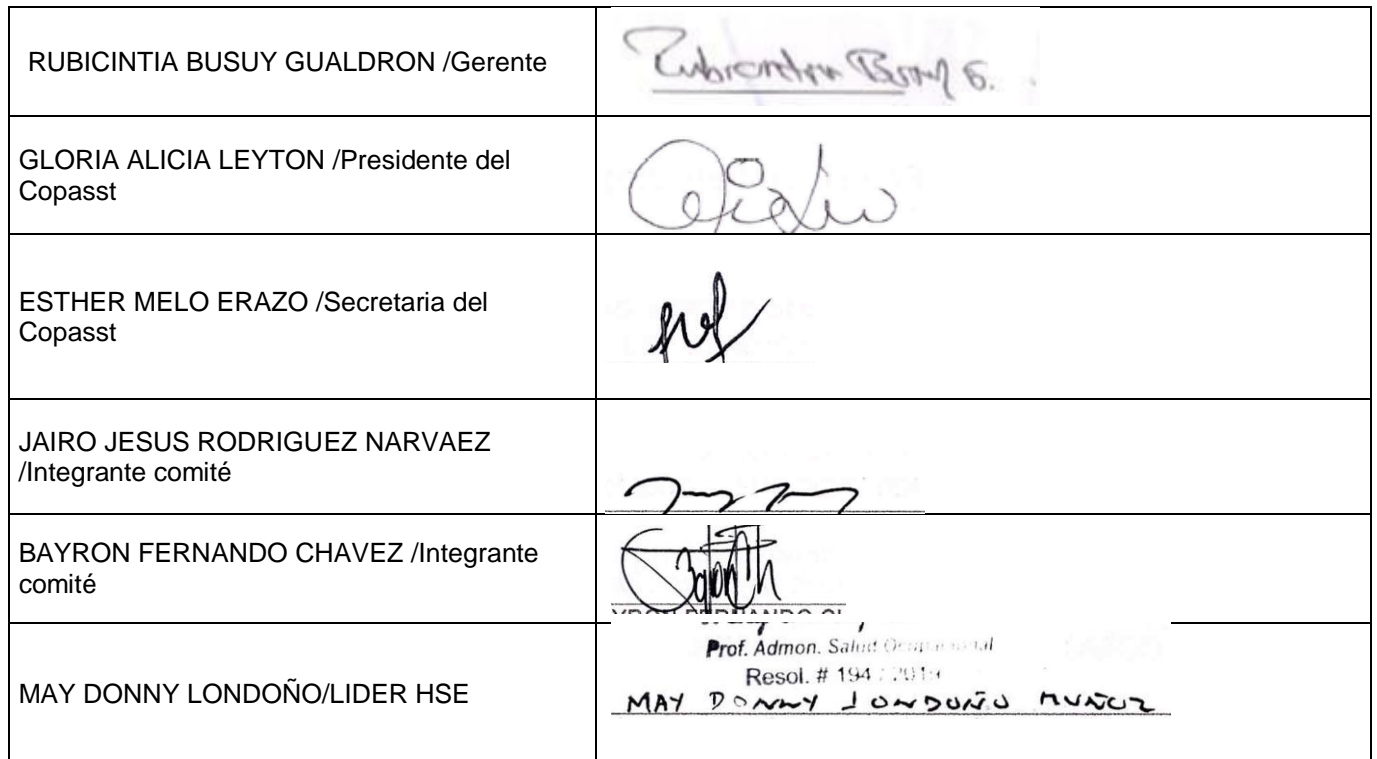 RUBICINTIA BUSUY GUALDRON /Gerente
GLORIA ALICIA LEYTON /Presidente del
Copasst
ESTHER MELO ERAZO /Secretaria del
Copasst
JAIRO JESUS RODRIGUEZ NARVAEZ
/Integrante comité
BAYRON FERNANDO CHAVEZ /Integrante
comité
MAY DONNY LONDOÑO/LIDER HSE
Prof. Admon. Salud Ocupacional
Resol. # 194 / 2019
MAY DONNY LONDOÑO MUÑOZ